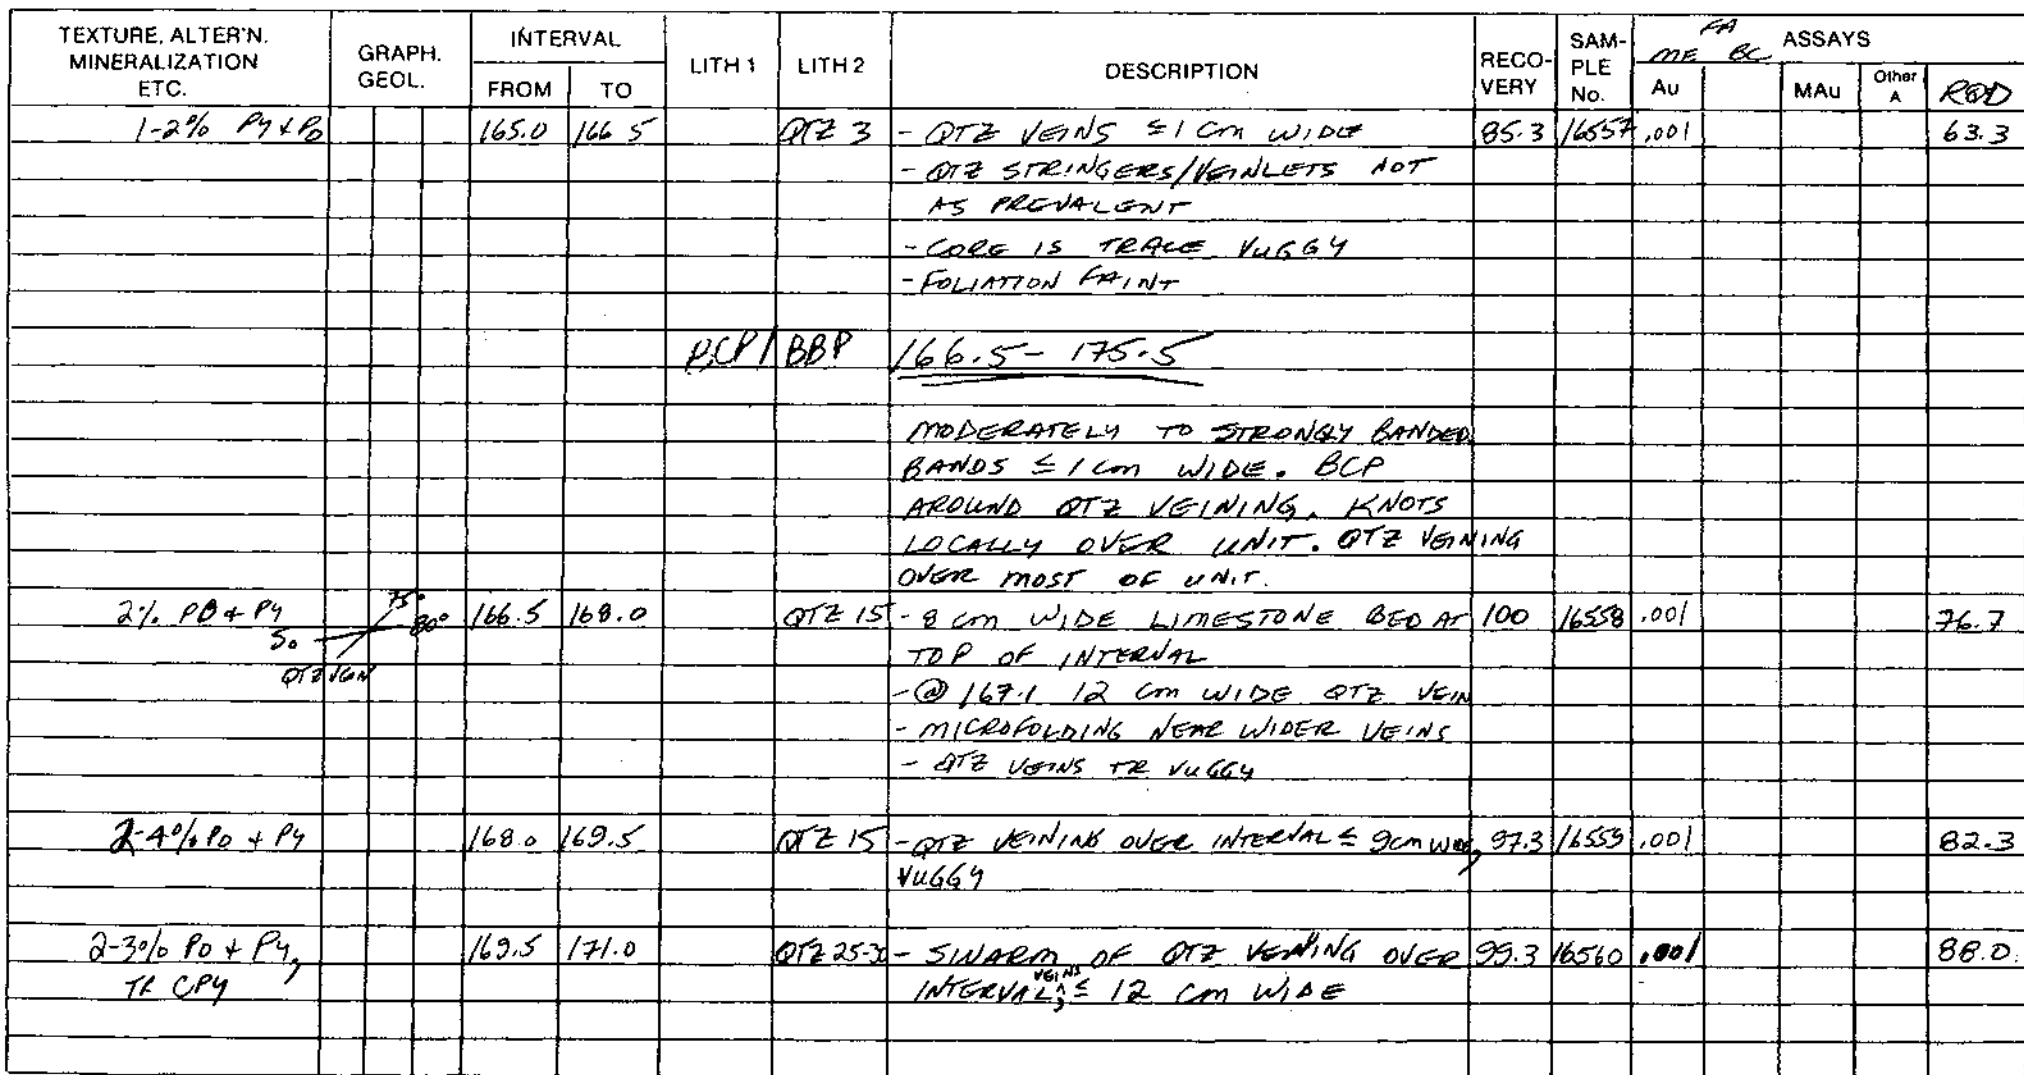 TEXTURE, ALTER'N. MINERALIZATION ETC.
GRAPH. GEOL.
INTERVAL
FROM TO
LITH 1
LITH 2
DESCRIPTION
RECO-VERY
SAM-PLE No.
FA
ME BC ASSAYS
Au MAu Other A RQD
1-2% Py + Po 165.0 166.5 QTZ 3 - QTZ VEINS ≤ 1 cm WIDE 85.3 16557 .001 63.3
- QTZ STRINGERS/VEINLETS NOT
AS PREVALENT
- CORE IS TRACE VUGGY
- FOLIATION FAINT
BCP / BBP 166.5 - 175.5
MODERATELY TO STRONGLY BANDED
BANDS ≤ 1 cm WIDE. BCP
AROUND QTZ VEINING. KNOTS
LOCALLY OVER UNIT. QTZ VEINING
OVER MOST OF UNIT.
2% PO + Py 75° 80° 166.5 168.0 QTZ 15 - 8 cm WIDE LIMESTONE BED AT 100 16558 .001 76.7
So
TOP OF INTERVAL
QTZ VEIN
- @ 167.1 12 cm WIDE QTZ VEIN
- MICROFOLDING NEAR WIDER VEINS
- QTZ VEINS TR VUGGY
2-4% Po + Py 168.0 169.5 QTZ 15 - QTZ VEINING OVER INTERVAL ≤ 9cm WIDE, 97.3 16559 .001 82.3
VUGGY
2-3% Po + Py, 169.5 171.0 QTZ 25-30 - SWARM OF QTZ VEINING OVER 99.3 16560 .001 88.0
TR CPY INTERVAL, VEINS ≤ 12 cm WIDE